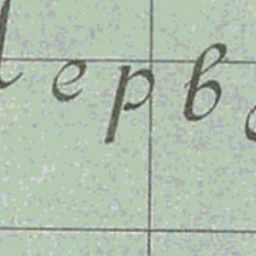 ерв